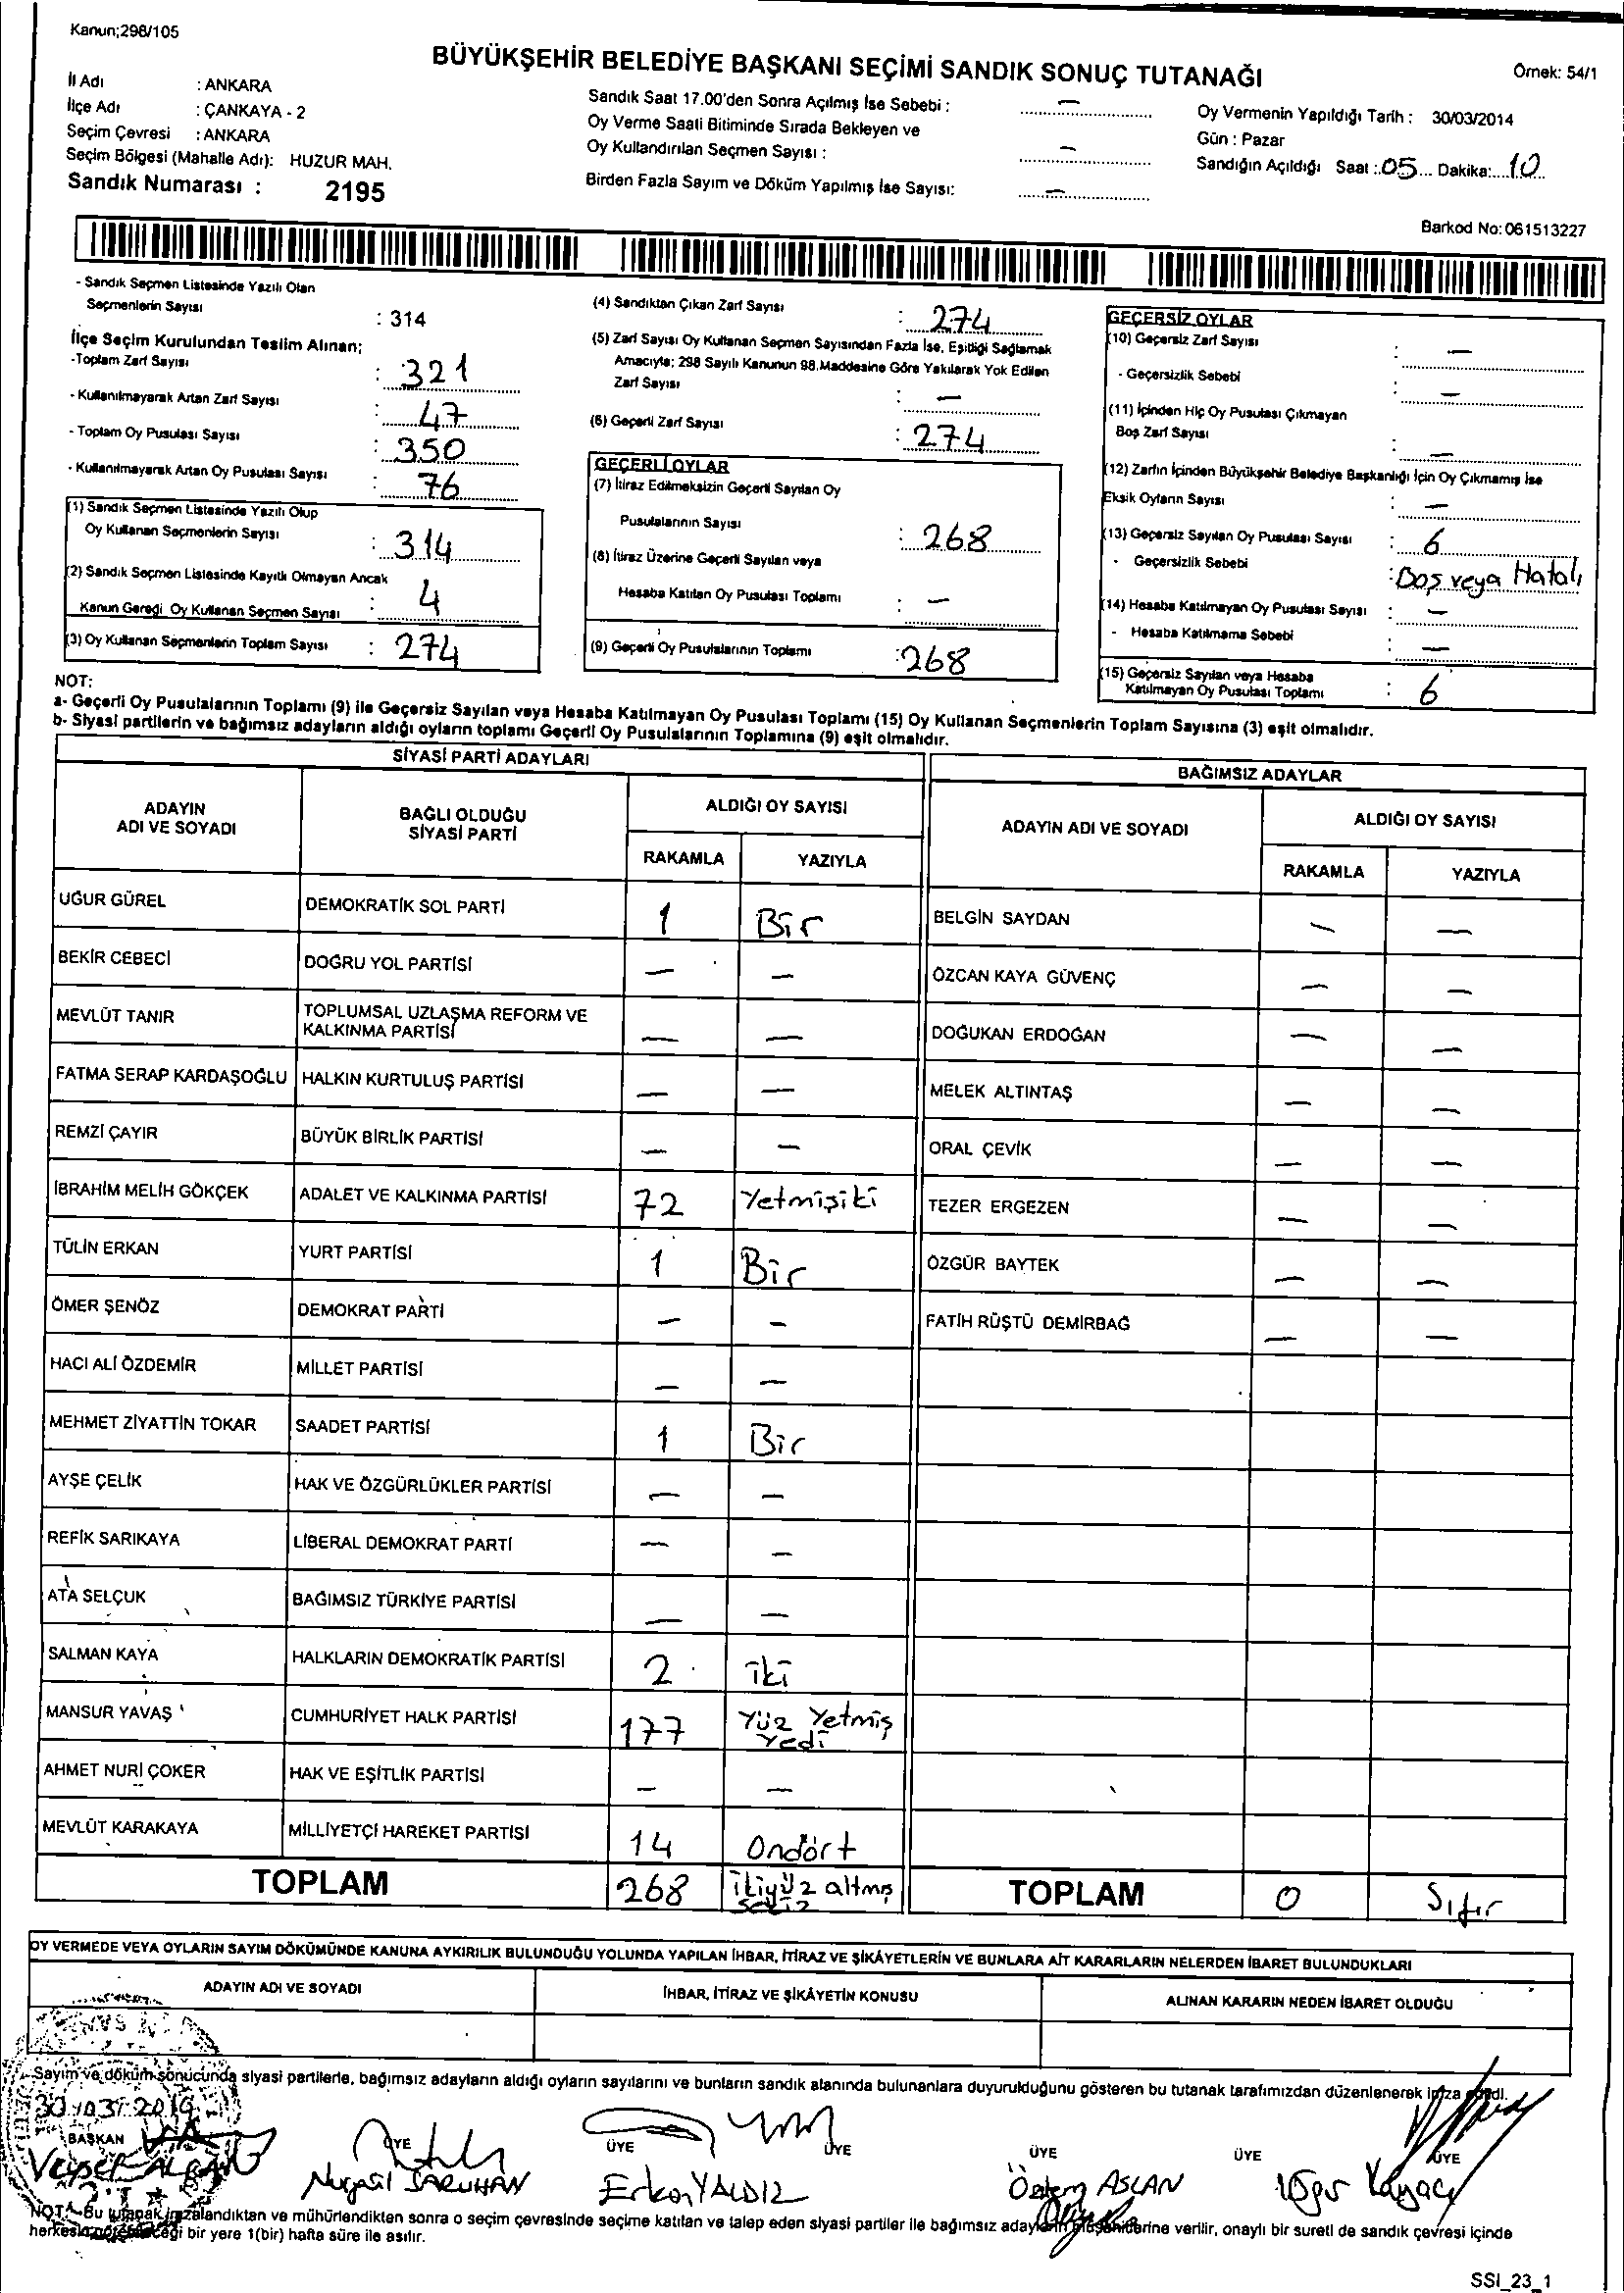 Kanun;298/105
BÜYÜKŞEHİR BELEDİYE BAŞKANI SEÇİMİ SANDIK SONUÇ TUTANAĞI
Örnek: 54/1
İl Adı : ANKARA
İlçe Adı : ÇANKAYA - 2
Seçim Çevresi : ANKARA
Seçim Bölgesi (Mahalle Adı): HUZUR MAH.
Sandık Numarası : 2195
Sandık Saat 17.00'den Sonra Açılmış İse Sebebi : —
Oy Verme Saati Bitiminde Sırada Bekleyen ve
Oy Kullandırılan Seçmen Sayısı : —
Birden Fazla Sayım ve Döküm Yapılmış İse Sayısı: —
Oy Vermenin Yapıldığı Tarih : 30/03/2014
Gün : Pazar
Sandığın Açıldığı Saat : 05 Dakika: 10
Barkod No: 061513227
- Sandık Seçmen Listesinde Yazılı Olan
Seçmenlerin Sayısı : 314
İlçe Seçim Kurulundan Teslim Alınan;
-Toplam Zarf Sayısı : 321
- Kullanılmayarak Artan Zarf Sayısı : 47
- Toplam Oy Pusulası Sayısı : 350
- Kullanılmayarak Artan Oy Pusulası Sayısı : 76
(1) Sandık Seçmen Listesinde Yazılı Olup
Oy Kullanan Seçmenlerin Sayısı : 314
(2) Sandık Seçmen Listesinde Kayıtlı Olmayan Ancak
Kanun Gereği Oy Kullanan Seçmen Sayısı : 4
(3) Oy Kullanan Seçmenlerin Toplam Sayısı : 274
(4) Sandıktan Çıkan Zarf Sayısı : 274
(5) Zarf Sayısı Oy Kullanan Seçmen Sayısından Fazla İse, Eşitliği Sağlamak
Amacıyla; 298 Sayılı Kanunun 98.Maddesine Göre Yakılarak Yok Edilen
Zarf Sayısı : —
(6) Geçerli Zarf Sayısı : 274
GEÇERLİ OYLAR
(7) İtiraz Edilmeksizin Geçerli Sayılan Oy
Pusulalarının Sayısı : 268
(8) İtiraz Üzerine Geçerli Sayılan veya
Hesaba Katılan Oy Pusulası Toplamı : —
(9) Geçerli Oy Pusulalarının Toplamı : 268
GEÇERSİZ OYLAR
(10) Geçersiz Zarf Sayısı : —
- Geçersizlik Sebebi : —
(11) İçinden Hiç Oy Pusulası Çıkmayan
Boş Zarf Sayısı : —
(12) Zarfın İçinden Büyükşehir Belediye Başkanlığı İçin Oy Çıkmamış İse
Eksik Oyların Sayısı : —
(13) Geçersiz Sayılan Oy Pusulası Sayısı : 6
- Geçersizlik Sebebi : Boş veya Hatalı
(14) Hesaba Katılmayan Oy Pusulası Sayısı : —
- Hesaba Katılmama Sebebi : —
(15) Geçersiz Sayılan veya Hesaba
Katılmayan Oy Pusulası Toplamı : 6
NOT:
a- Geçerli Oy Pusulalarının Toplamı (9) ile Geçersiz Sayılan veya Hesaba Katılmayan Oy Pusulası Toplamı (15) Oy Kullanan Seçmenlerin Toplam Sayısına (3) eşit olmalıdır.
b- Siyasi partilerin ve bağımsız adayların aldığı oyların toplamı Geçerli Oy Pusulalarının Toplamına (9) eşit olmalıdır.
SİYASİ PARTİ ADAYLARI
ADAYIN ADI VE SOYADI
BAĞLI OLDUĞU SİYASİ PARTİ
ALDIĞI OY SAYISI
RAKAMLA YAZIYLA
UĞUR GÜREL DEMOKRATİK SOL PARTİ 1 Bir
BEKİR CEBECİ DOĞRU YOL PARTİSİ — —
MEVLÜT TANIR TOPLUMSAL UZLAŞMA REFORM VE KALKINMA PARTİSİ — —
FATMA SERAP KARDAŞOĞLU HALKIN KURTULUŞ PARTİSİ — —
REMZİ ÇAYIR BÜYÜK BİRLİK PARTİSİ — —
İBRAHİM MELİH GÖKÇEK ADALET VE KALKINMA PARTİSİ 72 Yetmişiki
TÜLİN ERKAN YURT PARTİSİ 1 Bir
ÖMER ŞENÖZ DEMOKRAT PARTİ — —
HACI ALİ ÖZDEMİR MİLLET PARTİSİ — —
MEHMET ZİYATTİN TOKAR SAADET PARTİSİ 1 Bir
AYŞE ÇELİK HAK VE ÖZGÜRLÜKLER PARTİSİ — —
REFİK SARIKAYA LİBERAL DEMOKRAT PARTİ — —
ATA SELÇUK BAĞIMSIZ TÜRKİYE PARTİSİ — —
SALMAN KAYA HALKLARIN DEMOKRATİK PARTİSİ 2 iki
MANSUR YAVAŞ CUMHURİYET HALK PARTİSİ 177 Yüz Yetmiş Yedi
AHMET NURİ ÇOKER HAK VE EŞİTLİK PARTİSİ — —
MEVLÜT KARAKAYA MİLLİYETÇİ HAREKET PARTİSİ 14 Ondört
TOPLAM 268 ikiyüz altmış sekiz
BAĞIMSIZ ADAYLAR
ADAYIN ADI VE SOYADI
ALDIĞI OY SAYISI
RAKAMLA YAZIYLA
BELGİN SAYDAN — —
ÖZCAN KAYA GÜVENÇ — —
DOĞUKAN ERDOĞAN — —
MELEK ALTINTAŞ — —
ORAL ÇEVİK — —
TEZER ERGEZEN — —
ÖZGÜR BAYTEK — —
FATİH RÜŞTÜ DEMİRBAĞ — —
TOPLAM 0 Sıfır
OY VERMEDE VEYA OYLARIN SAYIM DÖKÜMÜNDE KANUNA AYKIRILIK BULUNDUĞU YOLUNDA YAPILAN İHBAR, İTİRAZ VE ŞİKÂYETLERİN VE BUNLARA AİT KARARLARIN NELERDEN İBARET BULUNDUKLARI
ADAYIN ADI VE SOYADI
İHBAR, İTİRAZ VE ŞİKÂYETİN KONUSU
ALINAN KARARIN NEDEN İBARET OLDUĞU
Sayım ve döküm sonucunda siyasi partilerle, bağımsız adayların aldığı oyların sayılarını ve bunların sandık alanında bulunanlara duyurulduğunu gösteren bu tutanak tarafımızdan düzenlenerek imza edildi.
BAŞKAN ÜYE ÜYE ÜYE ÜYE ÜYE ÜYE
SARUHAN Erkan YALDIZ ASLAN
NOT: Bu tutanak imzalandıktan ve mühürlendikten sonra o seçim çevresinde seçime katılan ve talep eden siyasi partiler ile bağımsız adayların müşahitlerine verilir, onaylı bir sureti de sandık çevresi içinde
herkesin görebileceği bir yere 1(bir) hafta süre ile asılır.
SSI_23_1